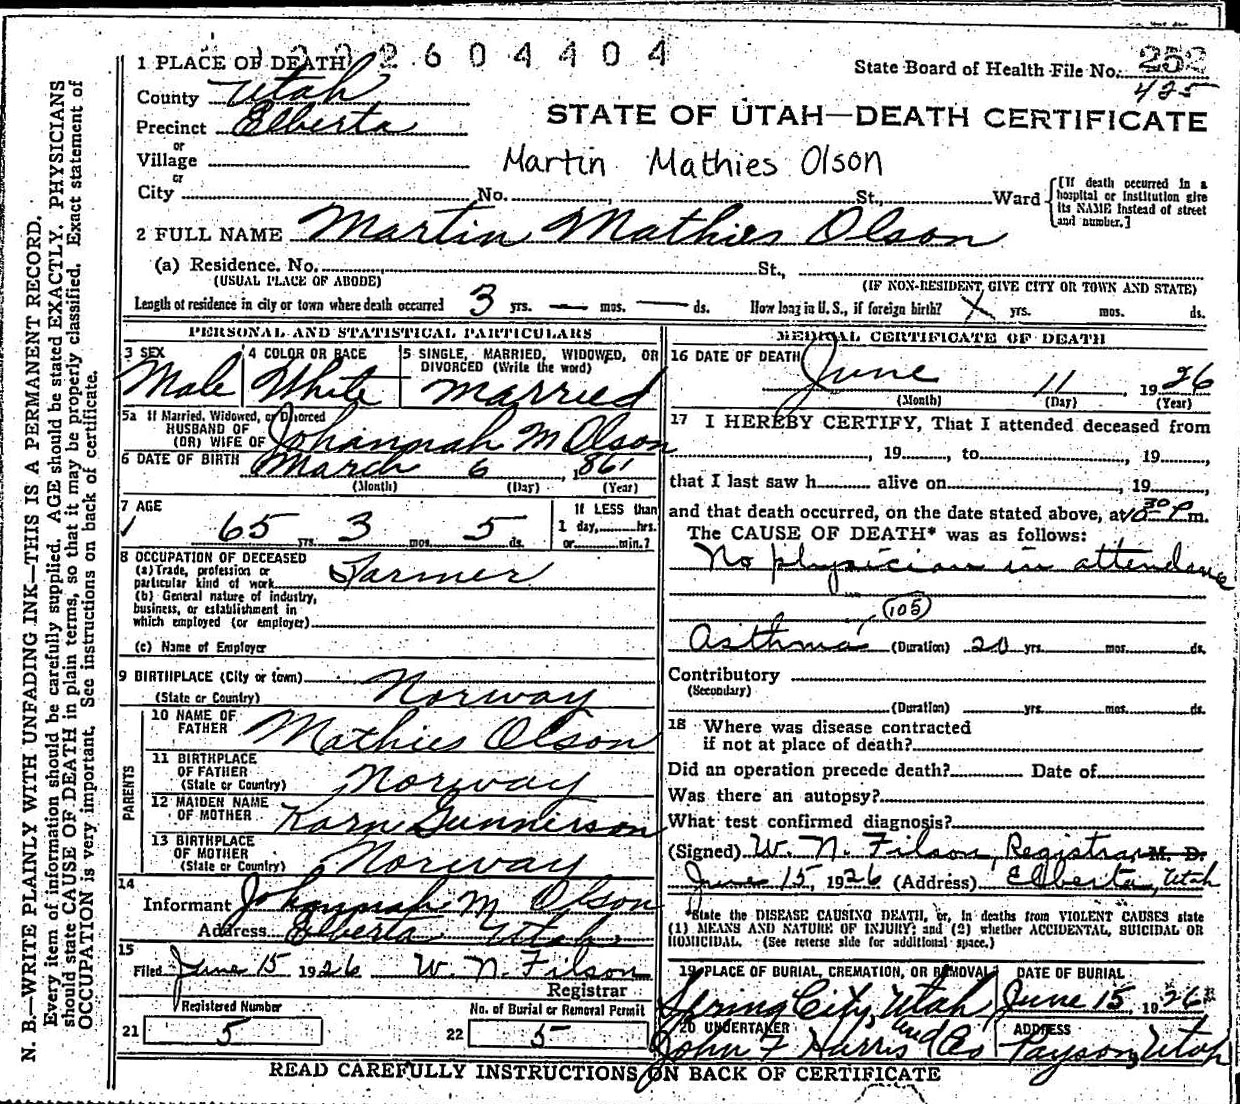 2604404
1 PLACE OF DEATH
State Board of Health File No. 252
425
County Utah
Precinct Elberta
STATE OF UTAH—DEATH CERTIFICATE
or
Village
Martin Mathies Olson
or
City No. St., Ward [If death occurred in a hospital or institution give its NAME instead of street and number.]
2 FULL NAME Martin Mathies Olson
(a) Residence. No. St.,
(USUAL PLACE OF ABODE) (IF NON-RESIDENT, GIVE CITY OR TOWN AND STATE)
Length of residence in city or town where death occurred 3 yrs. — mos. — ds. How long in U. S., if foreign birth? X yrs. mos. ds.
PERSONAL AND STATISTICAL PARTICULARS
3 SEX 4 COLOR OR RACE 5 SINGLE, MARRIED, WIDOWED, OR
DIVORCED (Write the word)
Male White married
5a If Married, Widowed, or Divorced
HUSBAND OF
(OR) WIFE OF Johannah M Olson
6 DATE OF BIRTH March 6, 1861
(Month) (Day) (Year)
7 AGE If LESS than
1 day, hrs.
65 yrs. 3 mos. 5 ds. or min.?
8 OCCUPATION OF DECEASED
(a) Trade, profession or
particular kind of work Farmer
(b) General nature of industry,
business, or establishment in
which employed (or employer)
(c) Name of Employer
9 BIRTHPLACE (City or town)
(State or Country) Norway
PARENTS
10 NAME OF
FATHER Mathies Olson
11 BIRTHPLACE
OF FATHER
(State or Country) Norway
12 MAIDEN NAME
OF MOTHER Karn Gunnerson
13 BIRTHPLACE
OF MOTHER
(State or Country) Norway
14
Informant Johannah M Olson
Address Elberta Utah
15
Filed June 15 1926 W. N. Filson
Registrar
Registered Number No. of Burial or Removal Permit
21 5 22 5
MEDICAL CERTIFICATE OF DEATH
16 DATE OF DEATH June 11, 1926
(Month) (Day) (Year)
17 I HEREBY CERTIFY, That I attended deceased from
, 19, to, 19,
that I last saw h alive on, 19,
and that death occurred, on the date stated above, at 10 30 P m.
The CAUSE OF DEATH* was as follows:
No physician in attendance
105
Asthma (Duration) 20 yrs. mos. ds.
Contributory
(Secondary)
(Duration) yrs. mos. ds.
18 Where was disease contracted
if not at place of death?
Did an operation precede death? Date of
Was there an autopsy?
What test confirmed diagnosis?
(Signed) W. N. Filson, Registrar M. D.
June 15, 1926 (Address) Elberta, Utah
*State the DISEASE CAUSING DEATH, or, in deaths from VIOLENT CAUSES state
(1) MEANS AND NATURE OF INJURY; and (2) whether ACCIDENTAL, SUICIDAL OR
HOMICIDAL. (See reverse side for additional space.)
19 PLACE OF BURIAL, CREMATION, OR REMOVAL DATE OF BURIAL
Spring City, Utah June 15, 1926
20 UNDERTAKER ADDRESS
John F Harris and Co Payson, Utah
READ CAREFULLY INSTRUCTIONS ON BACK OF CERTIFICATE
N. B.—WRITE PLAINLY WITH UNFADING INK—THIS IS A PERMANENT RECORD.
Every item of information should be carefully supplied. AGE should be stated EXACTLY. PHYSICIANS
should state CAUSE OF DEATH in plain terms, so that it may be properly classified. Exact statement of
OCCUPATION is very important. See instructions on back of certificate.